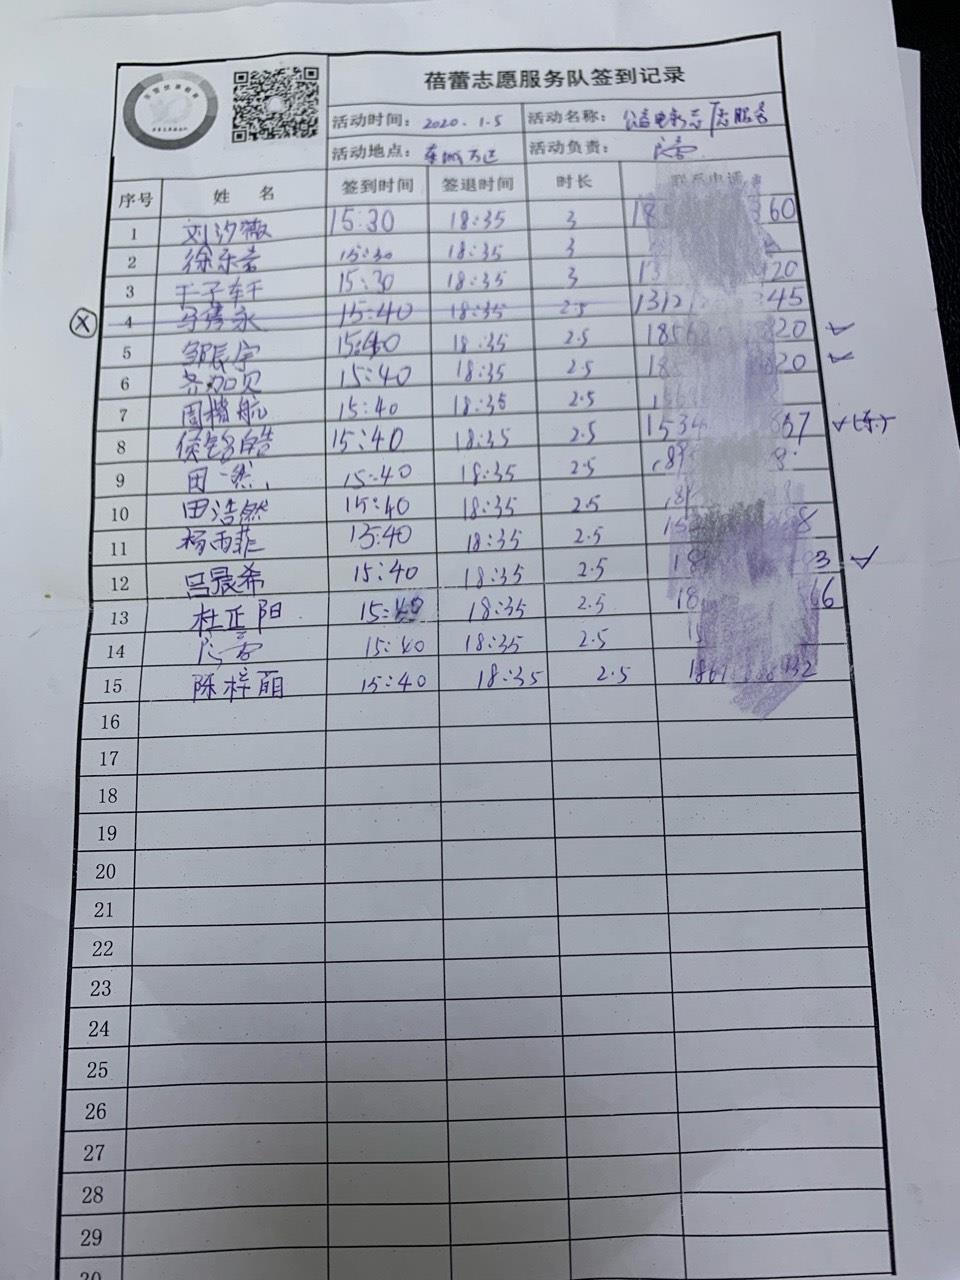 蓓蕾志愿服务队签到记录
活动时间: 2020.1.5 活动名称: 公益电影志愿服务
活动地点: 东城万达 活动负责:
序号 姓 名 签到时间 签退时间 时长 联系电话
1 刘汐薇 15:30 18:35 3 18 360
2 徐乐 15:30 18:35 3
3 于子轩 15:30 18:35 3 13 120
4 马隽永 15:40 18:35 2.5 1312 345
5 邹辰宇 15:40 18:35 2.5 1856 820
6 齐加贝 15:40 18:35 2.5 18 820
7 周楷航 15:40 18:35 2.5
8 侯铭皓 15:40 18:35 2.5 1534 657
9 田一然 15:40 18:35 2.5 189 8
10 田浩然 15:40 18:35 2.5 18
11 杨雨菲 15:40 18:35 2.5 15 8
12 吕晨希 15:40 18:35 2.5 18 83
13 杜正阳 15:40 18:35 2.5 18 66
14 15:40 18:35 2.5 1
15 陈梓丽 15:40 18:35 2.5 186 32
16
17
18
19
20
21
22
23
24
25
26
27
28
29
30